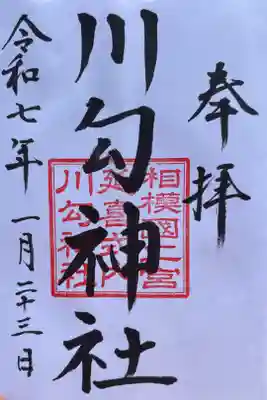 奉拝
相模國二宮
延喜式内
川勾神社
川勾神社
令和七年 一月二十三日